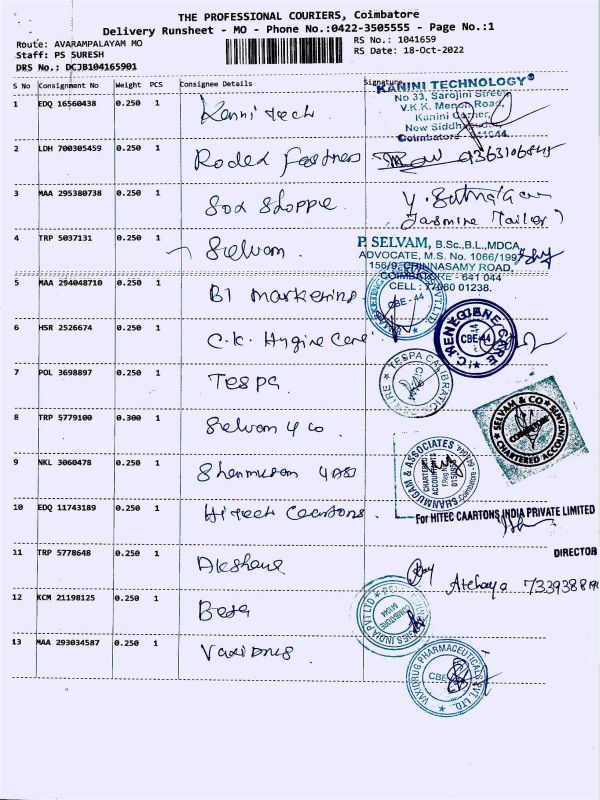 THE PROFESSIONAL COURIERS, Coimbatore
Delivery Runsheet - MO - Phone No.:0422-3505555 - Page No.:1
Route: AVARAMPALAYAM MO
RS No.: 1041659
Staff: PS SURESH
RS Date: 18-Oct-2022
DRS No.: DCJB104165901
S No Consignment No Weight PCS Consignee Details Signature
1 EDQ 16560438 0.250 1 Kanni tech
KANINI TECHNOLOGY
No 33, Sarojini Street,
V.K.K. Menon Road,
Kanini Corner,
New Siddha
Coimbatore
2 LDH 700305459 0.250 1
3 MAA 295380738 0.250 1 Shoppe
(Jasmine Tailor)
4 TRP 5037131 0.250 1 Selvam
P. SELVAM, B.Sc.,B.L.,MDCA,
ADVOCATE, M.S. No. 1066/199
156/9, CHINNASAMY ROAD,
COIMBATORE - 641 044
CELL : 01238.
5 MAA 294048710 0.250 1 B1 Marketing
CBE - 44
6 HSR 2526674 0.250 1 C.K. Hygine Care
CBE-44
7 POL 3698897 0.250 1 Tespa
TESPA
8 TRP 5779100 0.300 1 Selvam & co
SELVAM & CO
CHARTERED ACCOUNTANTS
9 NKL 3060478 0.250 1 Shanmugam
SHANMUGAM & ASSOCIATES
CHARTERED
ACCOUNTANTS
10 EDQ 11743189 0.250 1 Hi Tech Caartons
For HITEC CAARTONS INDIA PRIVATE LIMITED
DIRECTOR
11 TRP 5778648 0.250 1 Akshana
Atchaya
12 KCM 21198125 0.250 1 Beta
INDIA PVT LTD
13 MAA 293034587 0.250 1
VAXIDRUG PHARMACEUTICALS PVT. LTD.
CBE